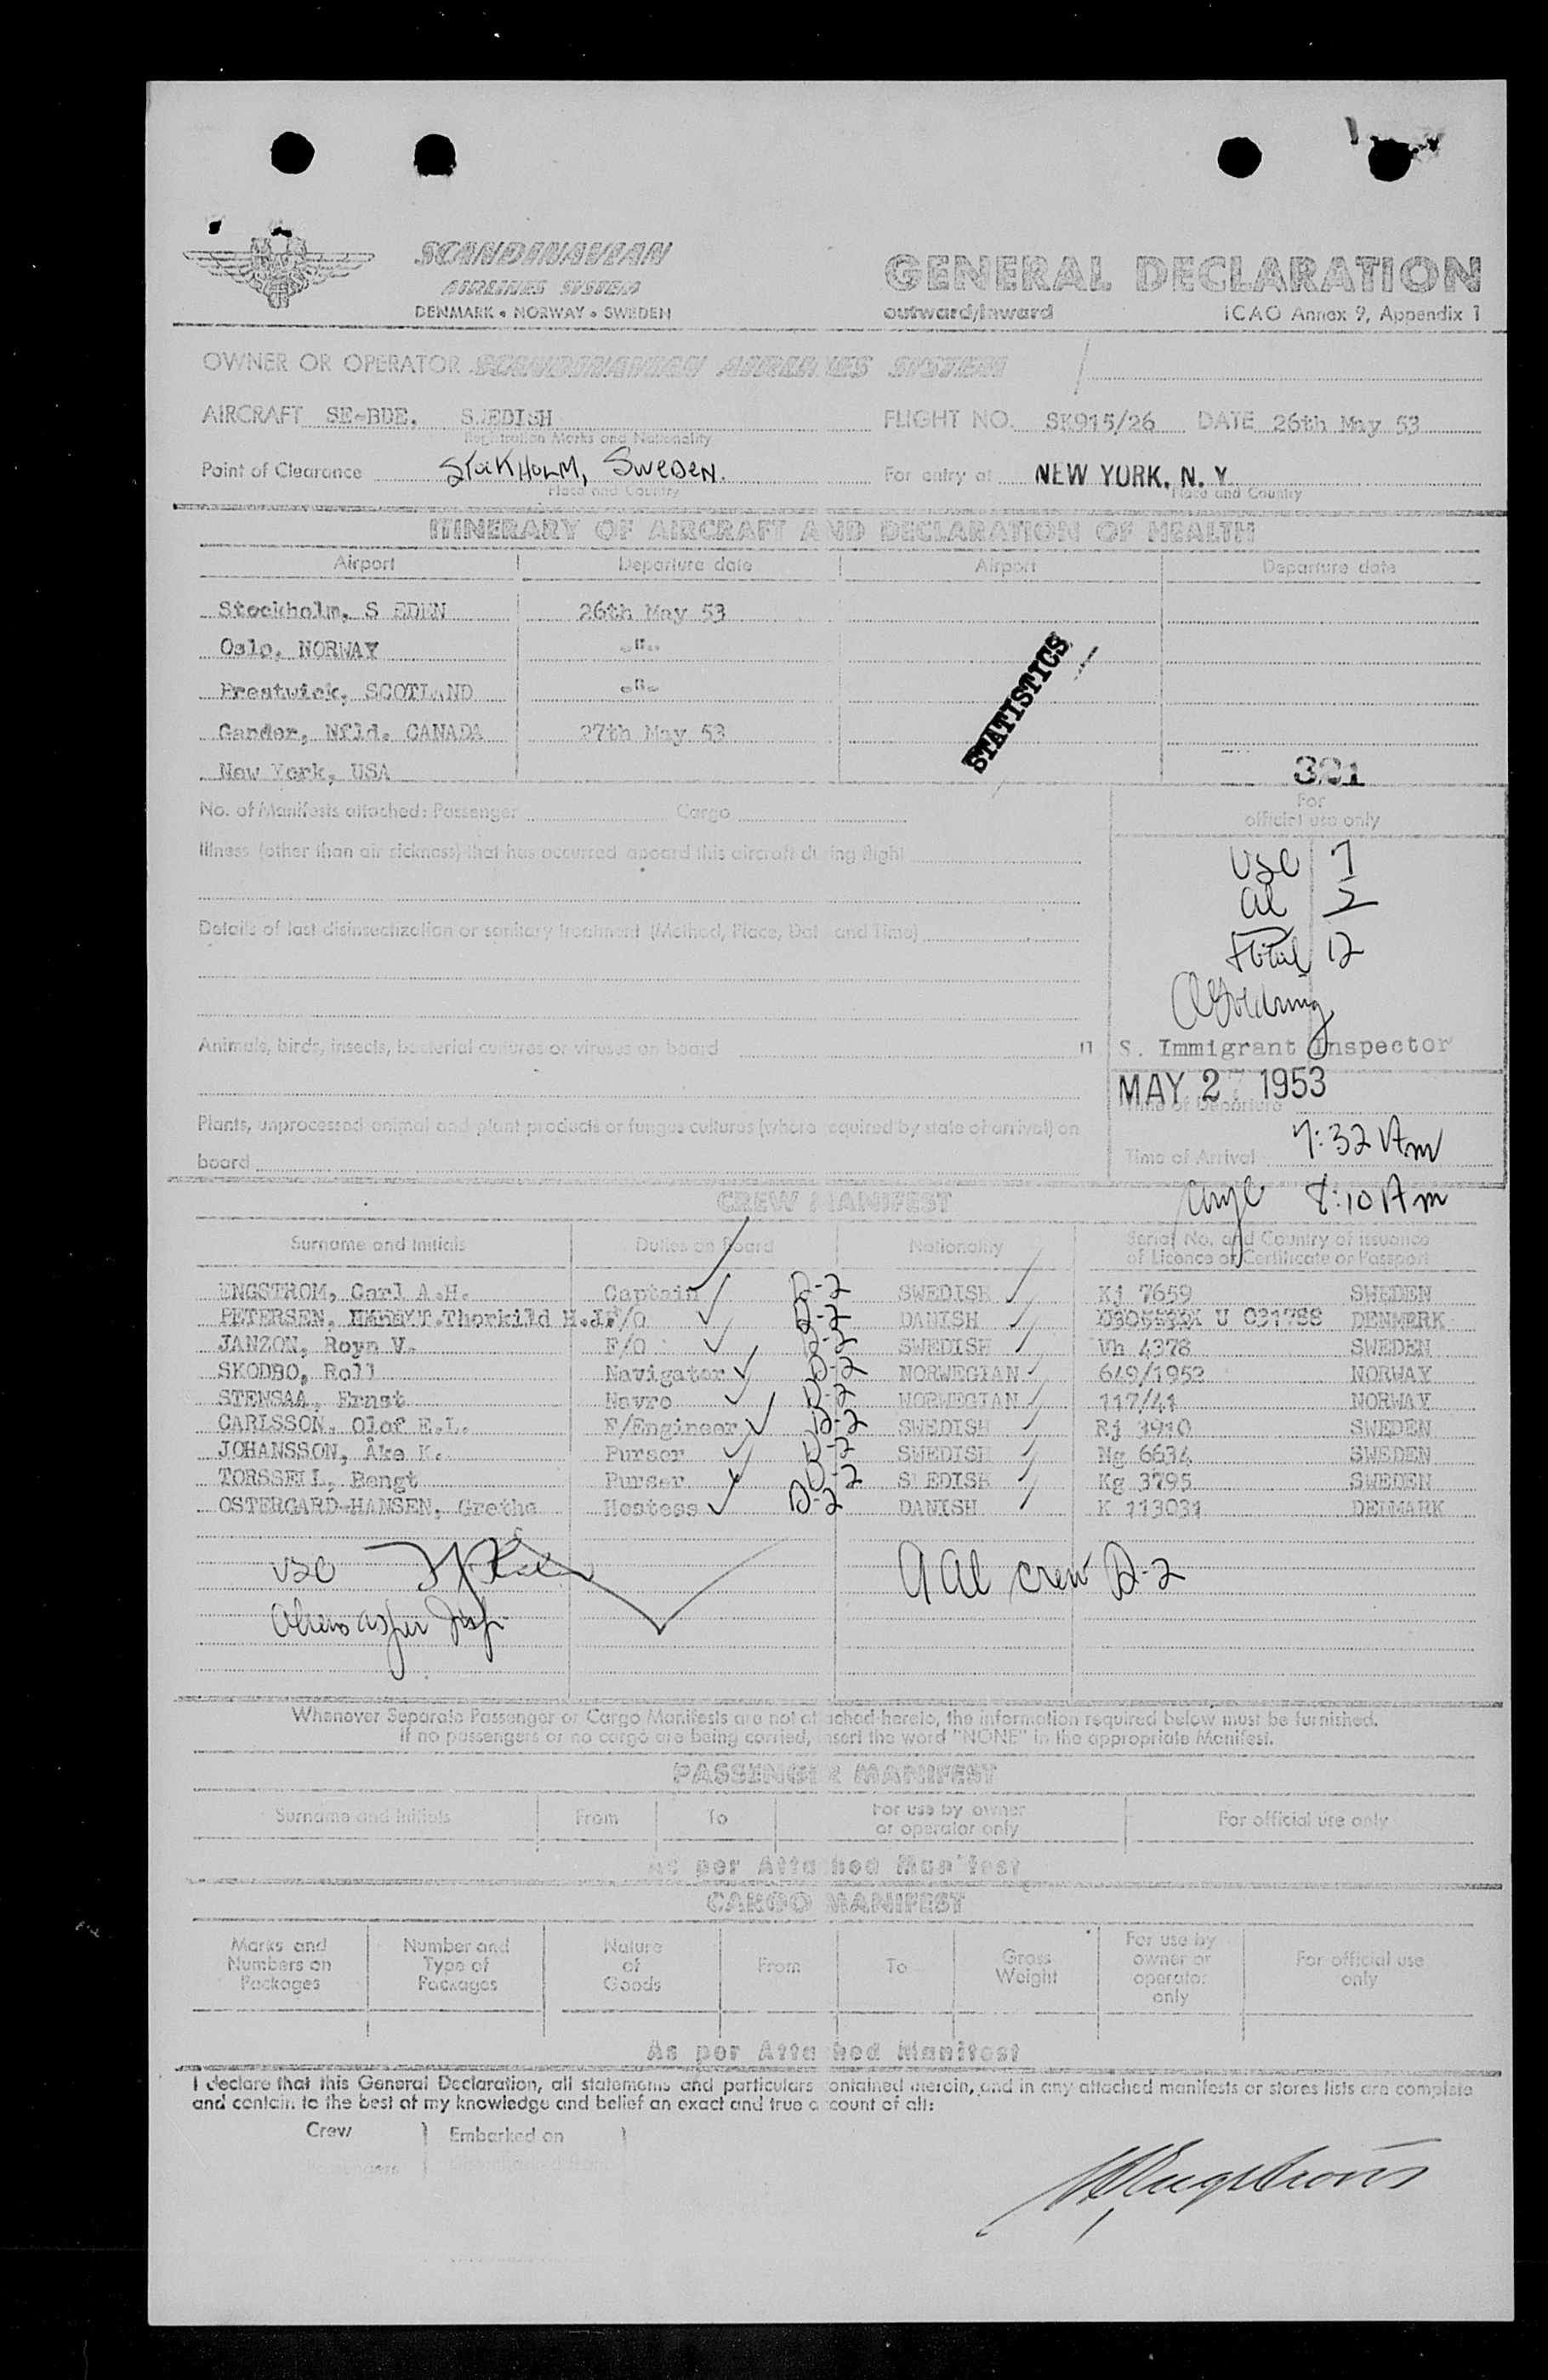 SCANDINAVIAN
AIRLINES SYSTEM
DENMARK • NORWAY • SWEDEN
GENERAL DECLARATION
outward/inward ICAO Annex 9, Appendix 1
OWNER OR OPERATOR SCANDINAVIAN AIRLINES SYSTEM
AIRCRAFT SE-BDE. SWEDISH FLIGHT NO. SK915/26 DATE 26th May 53
Registration Marks and Nationality
Point of Clearance STOCKHOLM, SWEDEN. For entry at NEW YORK, N. Y.
Place and Country Place and Country
ITINERARY OF AIRCRAFT AND DECLARATION OF HEALTH
Airport Departure date Airport Departure date
Stockholm, S EDEN 26th May 53
Oslo, NORWAY -"-
Prestwick, SCOTLAND -"-
Gander, Nfld. CANADA 27th May 53
New York, USA
STATISTICS
321
No. of Manifests attached: Passenger Cargo
For
official use only
Illness (other than air sickness) that has occurred aboard this aircraft during flight
USC 7
al
Details of last disinsectization or sanitary treatment (Method, Place, Date and Time)
total 12
Animals, birds, insects, bacterial cultures or viruses on board
S. Immigrant Inspector
MAY 27 1953
Time of Departure
Plants, unprocessed animal and plant products or fungus cultures (where required by state of arrival) on
board
Time of Arrival 7:32 Am
8:10 Am
CREW MANIFEST
Surname and Initials Duties on Board Nationality Serial No. and Country of issuance
of Licence or Certificate or Passport
ENGSTROM, Carl A.H. Captain D-2 SWEDISH Kj 7659 SWEDEN
PETERSEN, Thorkild H.J. F/O D-2 DANISH U 031788 DENMARK
JANZON, Royn V. F/O D-2 SWEDISH Vh 4378 SWEDEN
SKODBO, Rolf Navigator D-2 NORWEGIAN 649/1952 NORWAY
STENSAA, Ernst Navro D-2 NORWEGIAN 117/41 NORWAY
CARLSSON, Olof E.L. F/Engineer D-2 SWEDISH Rj 3910 SWEDEN
JOHANSSON, Åke K. Purser D-2 SWEDISH Ng 6634 SWEDEN
TORSSELL, Bengt Purser D-2 SWEDISH Kg 3795 SWEDEN
OSTERGARD-HANSEN, Grethe Hostess D-2 DANISH K 113031 DENMARK
USC
9 al crew D-2
Whenever Separate Passenger or Cargo Manifests are not attached hereto, the information required below must be furnished.
If no passengers or no cargo are being carried, insert the word "NONE" in the appropriate Manifest.
PASSENGER MANIFEST
Surname and Initials From To For use by owner
or operator only For official use only
As per Attached Manifest
CARGO MANIFEST
Marks and
Numbers on
Packages Number and
Type of
Packages Nature
of
Goods From To Gross
Weight For use by
owner or
operator
only For official use
only
As per Attached Manifest
I declare that this General Declaration, all statements and particulars contained therein, and in any attached manifests or stores lists are complete
and contain to the best of my knowledge and belief an exact and true account of all:
Crew Embarked on